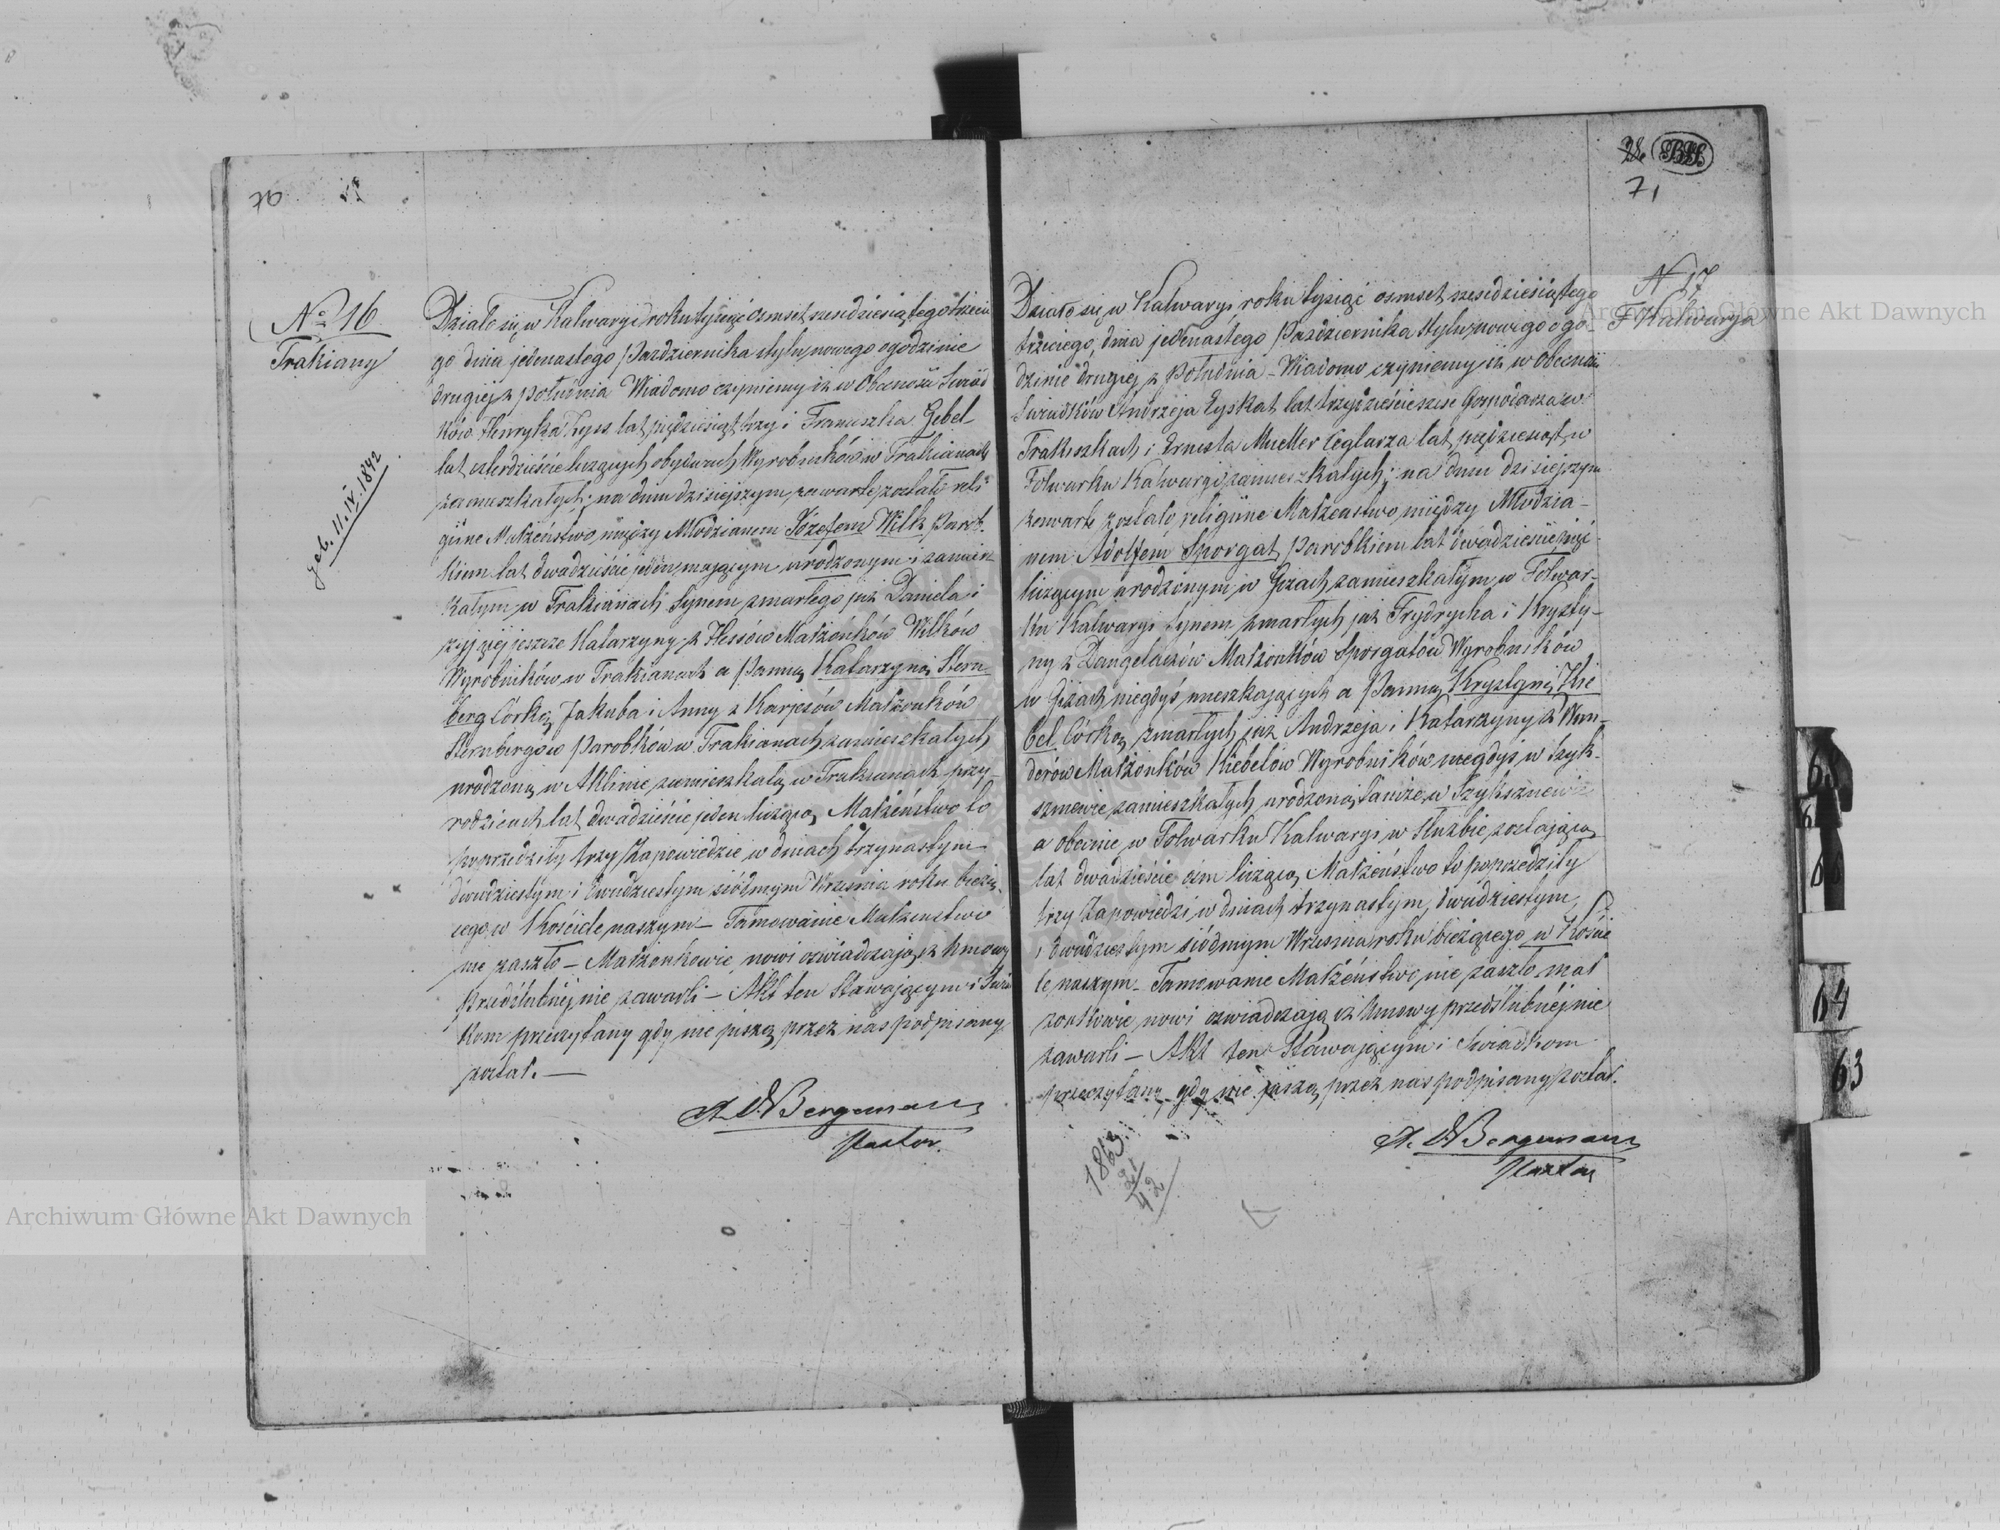 70
No 16
Trakiany
geb. 11.IV.1842
Działo się w Kalwaryi roku tysiąc osmset szesdziesiątego trzecie
go dnia jedenastego Pazdziernika stylu nowego o godzinie
drugiej z południa Wiadomo czyniemy iz w Obecnosci Swiad
ków Henryka Lyss lat pięcdziesiąt trzy i Franciszka Gebel
lat czterdzieście liczących obydwuch Wyrobników w Trakianach
zamieszkałych; na dniu dzisiejszym zawarte zostało reli
gijne Małzeństwo między Młodzianem Józefem Wilk Parob
kiem lat dwadzieście jeden mającym urodzonym i zamiesz
kałym w Trakianach Synem zmarłego juz Daniela i
zyjącej jeszcze Katarzyny z Hessów Małzonków Wilków
Wyrobników w Trakianach a Panną Katarzyną Stern
berg Córką Jakuba i Anny z Karjesów Małzonków
Sternbergów Parobków w Trakianach zamieszkałych
urodzoną w Aklinie zamieszkałą w Trakianach przy
rodzicach lat dwadzieście jeden liczącą Małzeństwo to
poprzedziły trzy Zapowiedzie w dniach trzynastym
dwudziestym i dwudziestym siódmym Wrzesnia roku bieżą
cego w Kościele naszym — Tamowanie Małzenstwo
nie zaszło — Małzonkowie nowi oswiadczają iz Umowy
Przedślubnéj nie zawarli — Akt ten Stawającym i Swiad
kom przeczytany gdy nie piszą przez nas podpisany
został. —
A. W Bergemann
Pastor.
71
N 17
F. Kalwarya
Działo się w Kalwaryi roku tysiąc osmset szesdziesiątego
trzeciego, dnia jedenastego Pazdziernika Stylu nowego o go-
dzinie drugiej z Południa — Wiadomo czyniemy iz w Obecnosci
Swiadków Andrzeja Eyskat lat trzydzieście szesc Gospodarza w
Trakiszkach i Ernesta Mueller Ceglarza lat pięcdziesiąt w
Folwarku Kalwaryi zamieszkałych; na dniu dzisiejszym
zawarte zostało religijne Małzenstwo między Młodzia-
nem Adolfem Sporgat Parobkiem lat dwadzieście pięc
liczącym urodzonym w Gizach zamieszkałym w Folwar-
ku Kalwaryi Synem zmarłych juz Frydrycha i Krysty-
ny z Dangelaczów Małzonków Sporgatów Wyrobników
w Gizach niegdyś mieszkających a Panną Krystyną Kie
bel Córką zmarłych juz Andrzeja i Katarzyny z Wun-
derów Małzonków Kiebelów Wyrobników niegdyś w Szyk-
sznewie zamieszkałych urodzoną tamże w Szyksznewie
a obecnie w Folwarku Kalwaryi w Służbie zostającą
lat dwadzieście osm liczącą Małzeństwo to poprzedziły
trzy Zapowiedzi w dniach trzynastym, dwudziestym,
i dwudziestym siódmym Wrzesnia roku bieżącego w Kościo
le naszym — Tamowanie Małzeństwo nie zaszło mał
zonkowie nowi oswiadczają iz Umowy przedślubnéj nie
zawarli — Akt ten Stawającym i Swiadkom
przeczytany gdy nie piszą przez nas podpisany został.
A. W Bergemann
Pastor
1863
21
42
64
63
Archiwum Główne Akt Dawnych
Archiwum Główne Akt Dawnych